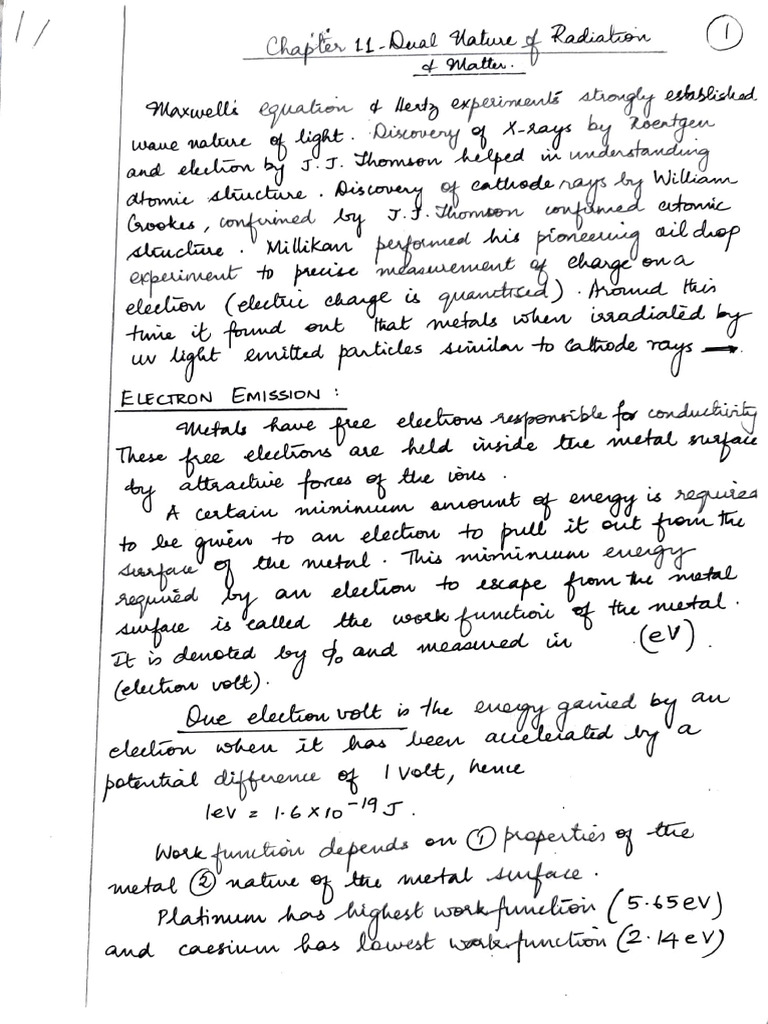 11
Chapter 11 - Dual Nature of Radiation
& Matter.
1
Maxwell's equation & Hertz experiments strongly established
wave nature of light. Discovery of X-rays by Roentgen
and electron by J.J. Thomson helped in understanding
atomic structure. Discovery of cathode rays by William
Crookes, confirmed by J.J. Thomson confirmed atomic
structure. Millikan performed his pioneering oil drop
experiment to precise measurement of charge on a
electron (electric charge is quantised). Around this
time it found out that metals when irradiated by
uv light emitted particles similar to cathode rays
ELECTRON EMISSION :
Metals have free electrons responsible for conductivity
These free electrons are held inside the metal surface
by attractive forces of the ions.
A certain minimum amount of energy is required
to be given to an electron to pull it out from the
surface of the metal. This minimum energy
required by an electron to escape from the metal
surface is called the work function of the metal.
It is denoted by ϕ₀ and measured in (eV).
(electron volt).
One electron volt is the energy gained by an
electron when it has been accelerated by a
potential difference of 1 volt, hence
1eV = 1.6 × 10⁻¹⁹ J.
Work function depends on ① properties of the
metal ② nature of the metal surface.
Platinum has highest work function (5.65eV)
and caesium has lowest work function (2.14eV)